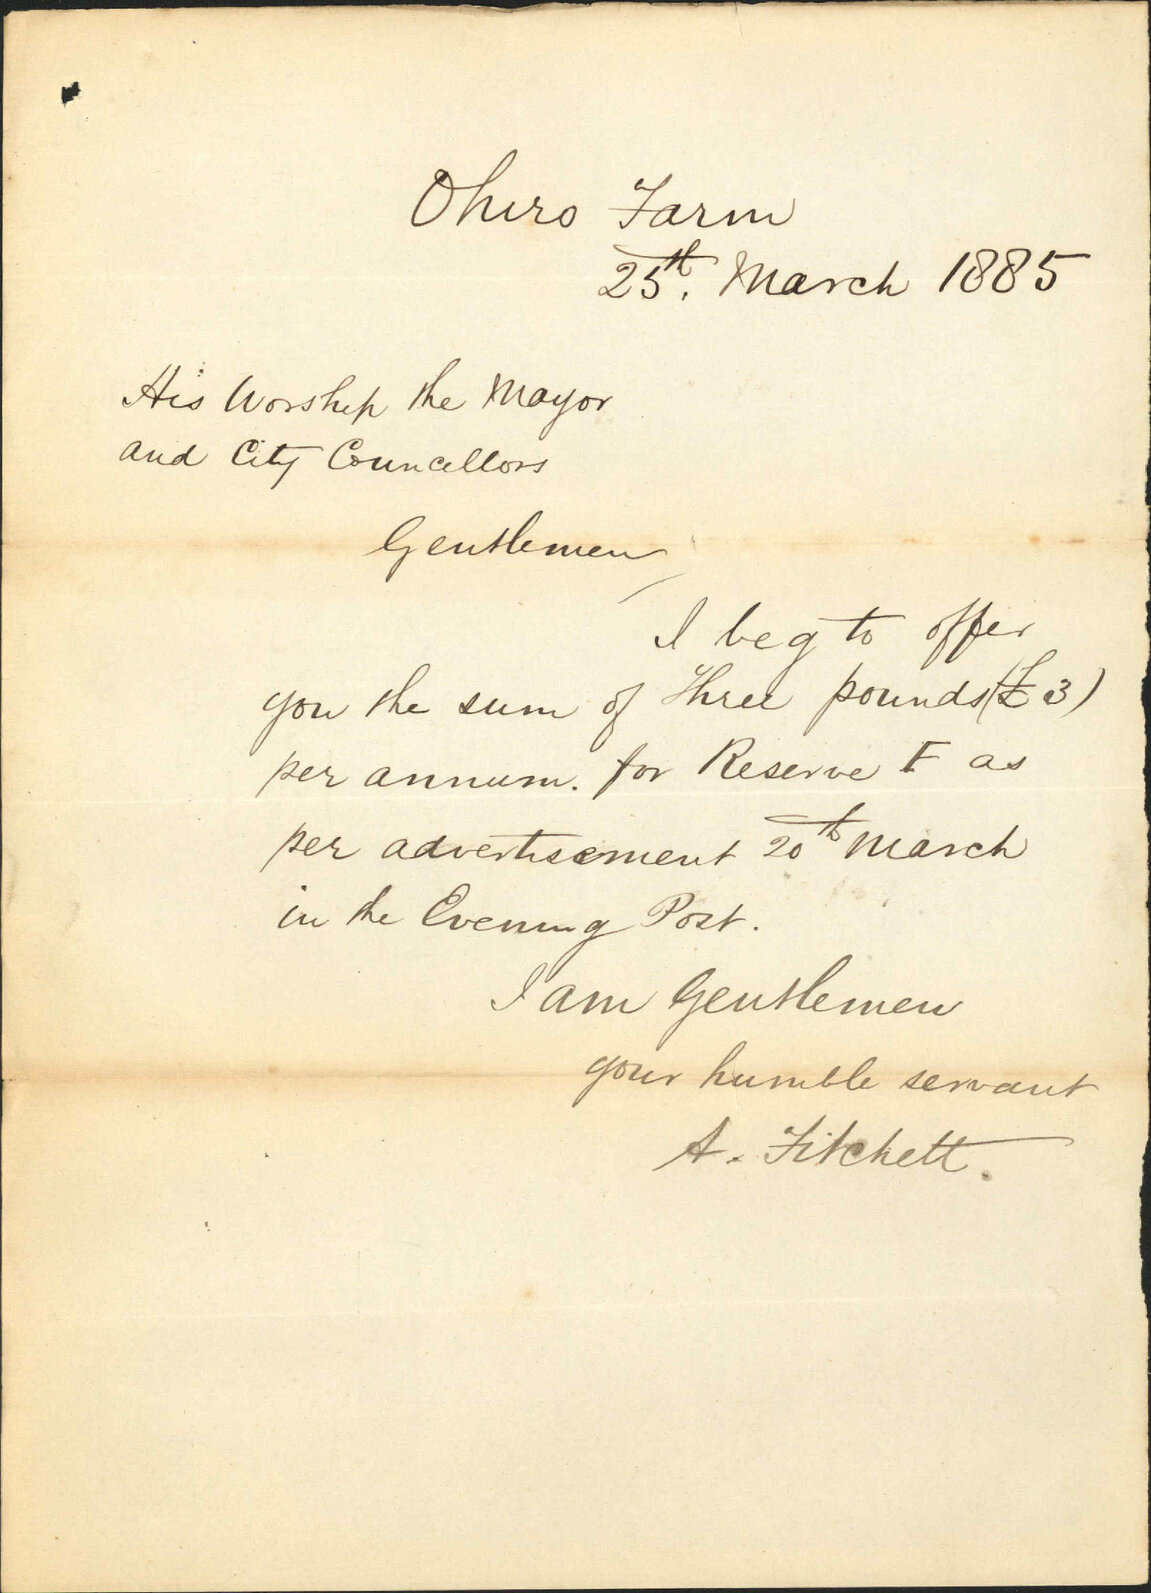 Ohiro Farm
25th. March 1885
His Worship the Mayor
and City Councellors
Gentlemen,
I beg to offer
you the sum of Three pounds (£3)
per annum. for Reserve F as
per advertisement 20th March
in the Evening Post.
I am Gentlemen
your humble servant
A. Fitchett.